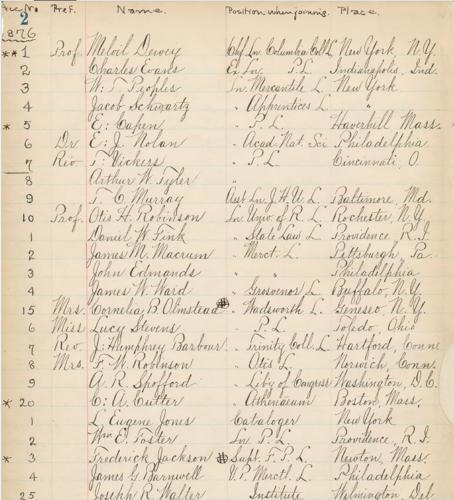 Acc. No Pref. Name. Position when joining. Place.
2
1876
**1 Prof. Melvil Dewey Chf Ln. Columbia Coll L New York, N.Y.
2 Charles Evans Ex Ln. P.L. Indianapolis, Ind.
3 W. T. Peoples Ln. Mercantile L. New York
4 Jacob Schwartz " Apprentices L. "
*5 E. Capen " P.L. Haverhill Mass.
6 Dr E. J. Nolan " Acad. Nat. Sci. Philadelphia
7 Rev T. Vickers " P.L. Cincinnati, O.
8 Arthur W. Tyler "
9 T. C. Murray Asst Ln J.H.U.L. Baltimore, Md.
10 Prof. Otis H. Robinson Ln. Univ. of R. L. Rochester, N.Y.
1 Daniel W. Fink " State Law L. Providence, R.I.
2 James M. Macrum " Merct. L. Pittsburgh, Pa.
3 John Edmands " " Philadelphia
4 James W. Ward " Grosvenor L. Buffalo, N.Y.
15 Mrs. Cornelia B. Olmstead # " Wadsworth L. Geneseo, N.Y.
6 Miss Lucy Stevens " P.L. Toledo, Ohio
7 Rev. J. Humphrey Barbour " Trinity Coll. L. Hartford, Conn
8 Mrs. F. W. Robinson " Otis L. Norwich, Conn.
9 A. R. Spofford " Liby of Congress Washington, D.C.
*20 C. A. Cutter " Athenaeum Boston, Mass.
1 L Eugene Jones Cataloger New York
2 Wm E. Foster Ln. P.L. Providence, R.I.
*3 Frederick Jackson # Supt. F.P.L. Newton, Mass.
4 James G. Barnwell V.P. Merctl. L. Philadelphia
25 Joseph R. Walter " Institute Wilmington, Del.